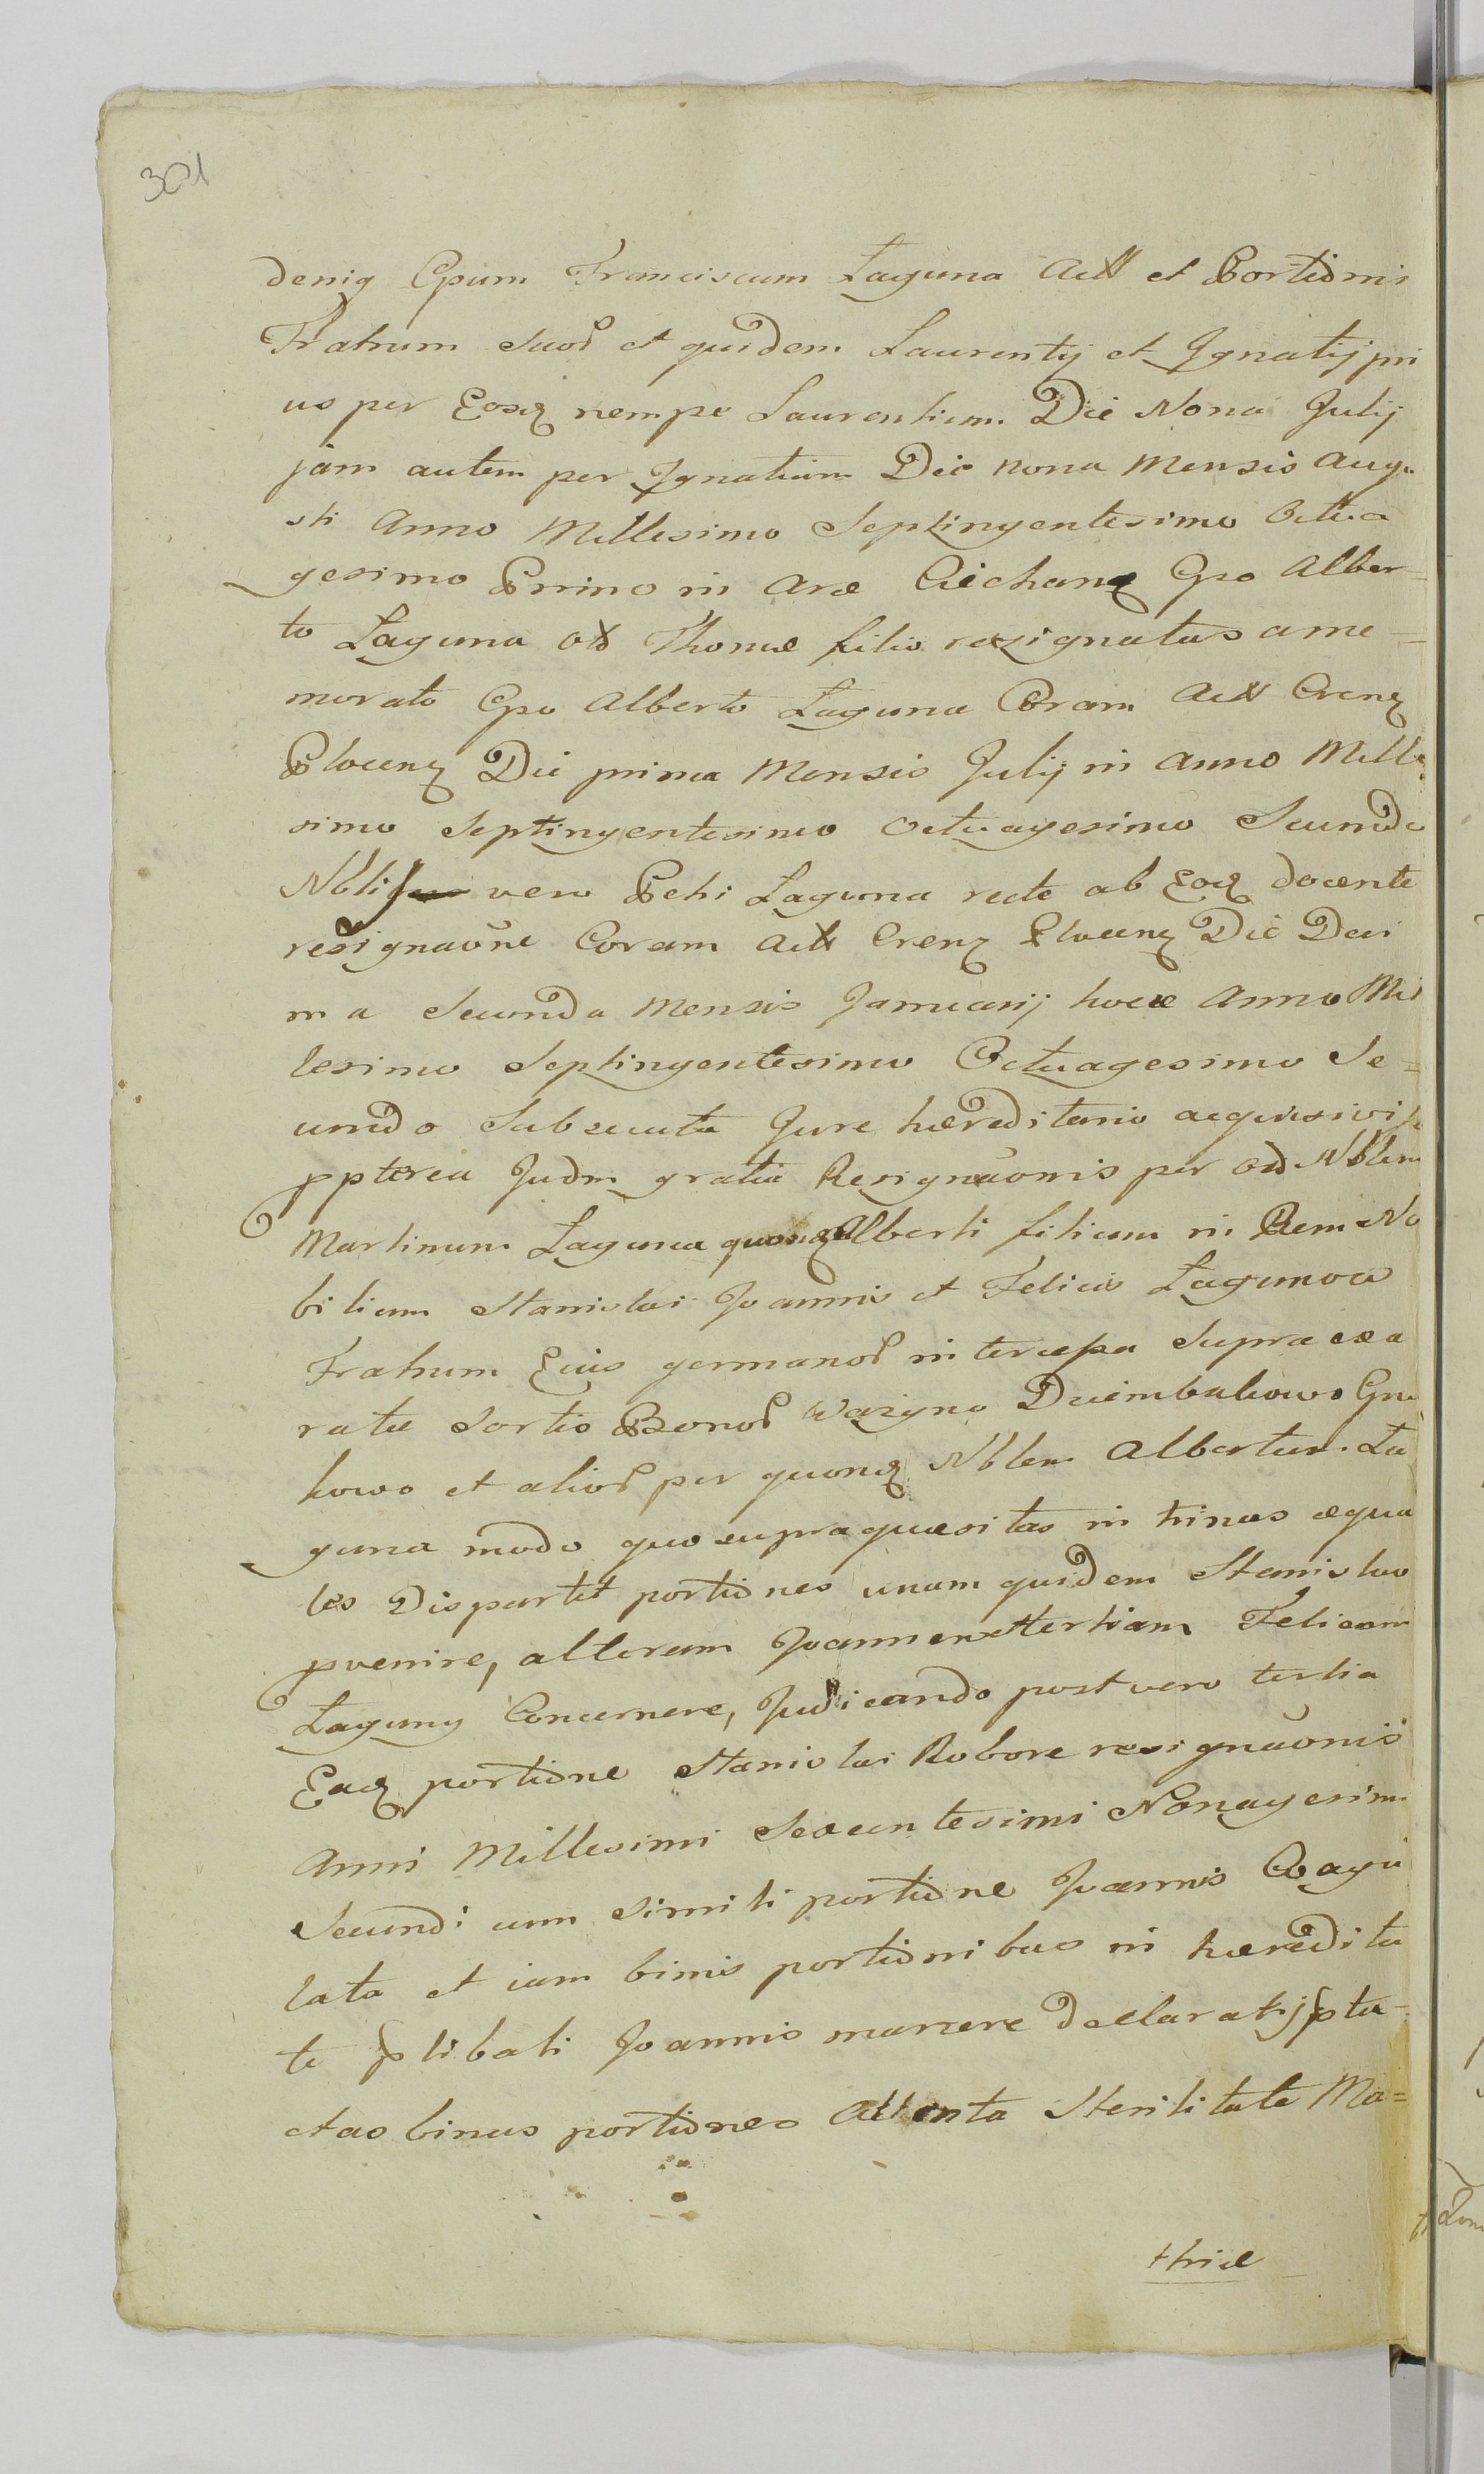 301
deniq Gpum Franciscum Laguna Actt et Portiõnis
Fratrum Suor et quidem Laurentij et Ignatij pri
us per Eosd nempe Laurentium Die Nona Julij
jam autem per Ignatium Die nona Mensis Augu
sti Anno Millesimo Septingentesimo Octua
gesimo Primo in Arce Ciechanq Gpo Alber-
to Laguna ott Thomæ filio resignatas a me-
morato Gpo Alberto Laguna Coram Actt Crenq
Plocenq Die prima Mensis Julij in Anno Mille
simo Septingentesimo Octuagesimo Secundo
Nbli vero Petri Laguna recte ab Eod docente
resignaõne Coram Actt Crenq Plocenq Die Deci
ma Secunda Mensis Januarij hocce Anno Mil
lesimo Septingentesimo Octuagesimo Se=
cundo Subsecuta Jure hæreditario acquisivi
ppterea Judm gratia Resignaõnis per od Nblem
Martinum Laguna quond Alberti filium in Rem No
bilium Stanislai Joannis et Felicis Lagunow
Fratrum Ejus germanor intercepta Supra exa
ratæ Sortis Bonor Wazyno Dziembakowo Gnu
kowo et alior per quond Nblem Albertum La
guna modo quo supra quæsitas in trinas æqua
les Dispartit portiones unam quidem Stanislao
pvenire, alteram Joannem et tertiam Felicem
Laguny Concernere, Judicando post vero tertia
Ead portiõne Stanislai Robore resignaõnis
Anni Millesimi Sexcentesimi Nonagesimi
Secundi cum simili portiõne Joannis Coagu
lata et iam binis portiõnibus in hæredita
te plibati Joannis manere declaratis pta-
ctas binas portiõnes Attenta Sterilitate Ma=
triæ